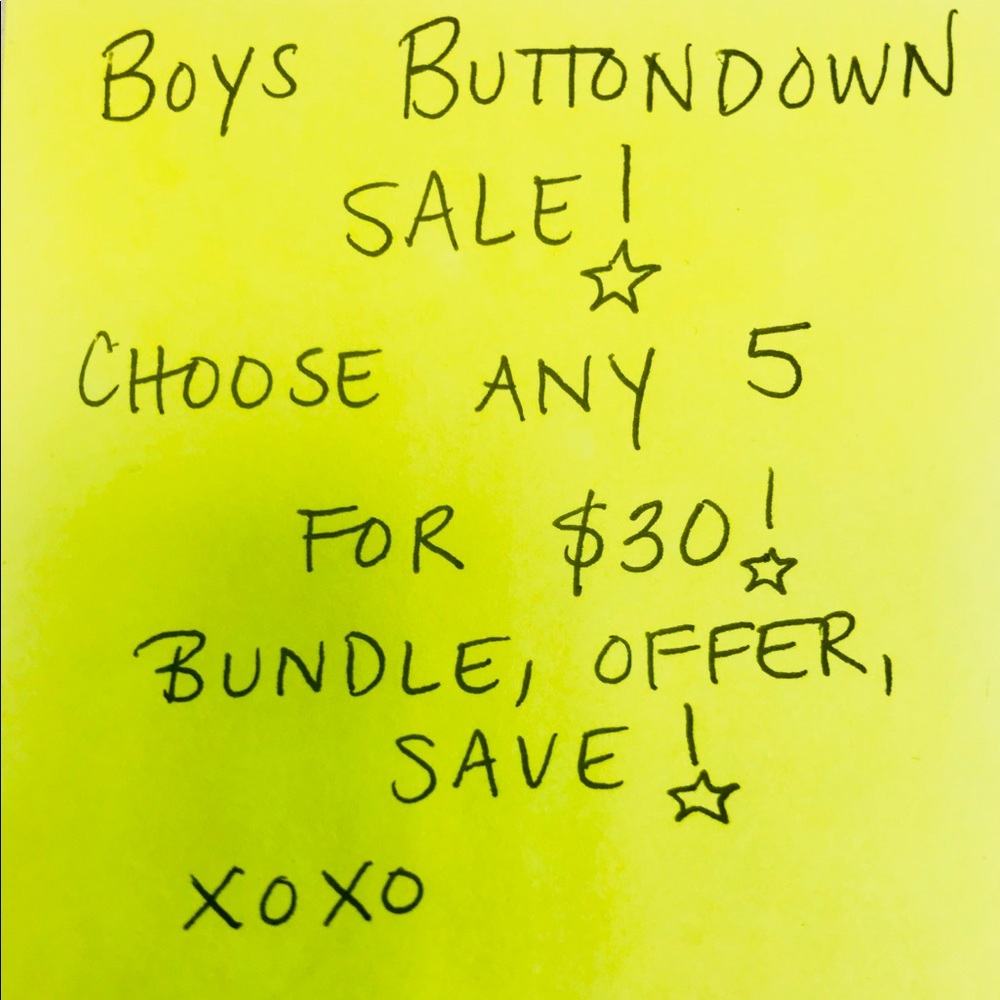 BOYS BUTTONDOWN
SALE!
CHOOSE ANY 5
FOR $30!
BUNDLE, OFFER,
SAVE!
XOXO